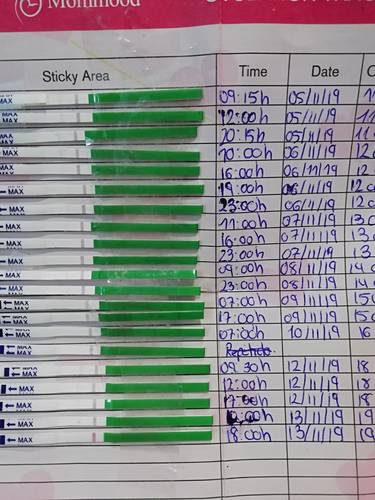 Mommood
Sticky Area Time Date
MAX 09:15h 05/11/19 11
MAX 12:00h 05/11/19 11
MAX 20:15h 05/11/19 11
MAX 10:00h 06/11/19 12
MAX 16:00h 06/11/19 12
MAX 19:00h 06/11/19 12
MAX 23:00h 06/11/19 12
MAX 11:00h 07/11/19 13
MAX 16:00h 07/11/19 13
MAX 23:00h 07/11/19 13
MAX 09:00h 08/11/19 14
MAX 23:00h 08/11/19 14
MAX 07:00h 09/11/19 15
MAX 17:00h 09/11/19 15
MAX 07:00h 10/11/19 16
MAX Repetido
MAX 09:30h 12/11/19 18
MAX 12:00h 12/11/19 18
MAX 17:00h 12/11/19 18
MAX :00h 13/11/19 19
MAX 18:00h 13/11/19 19